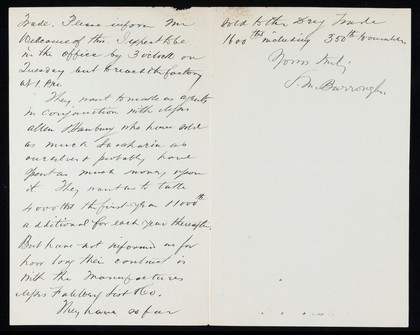 trade. Please inform Mr
Welcome of this. I expect to be
in the office by 3 o'clock on
Tuesday but to reach the factory
at 1 P.M.
They want to made us agents
in conjunction with Messrs
Allen & Hanbury who have sold
as much Saccharin as
ourselves & probably have
spent as much money upon
it. They want us to take
4000 lbs the first year & 1000 lbs
additional for each year thereafter.
But have not informed us for
how long their contract is
with the Manufacturers
Messrs Fahlberg List & Co.
They have so far
sold to the Drug Trade
1600 lbs including 350 lbs to ourselves
Yours truly
S. M. Burroughs